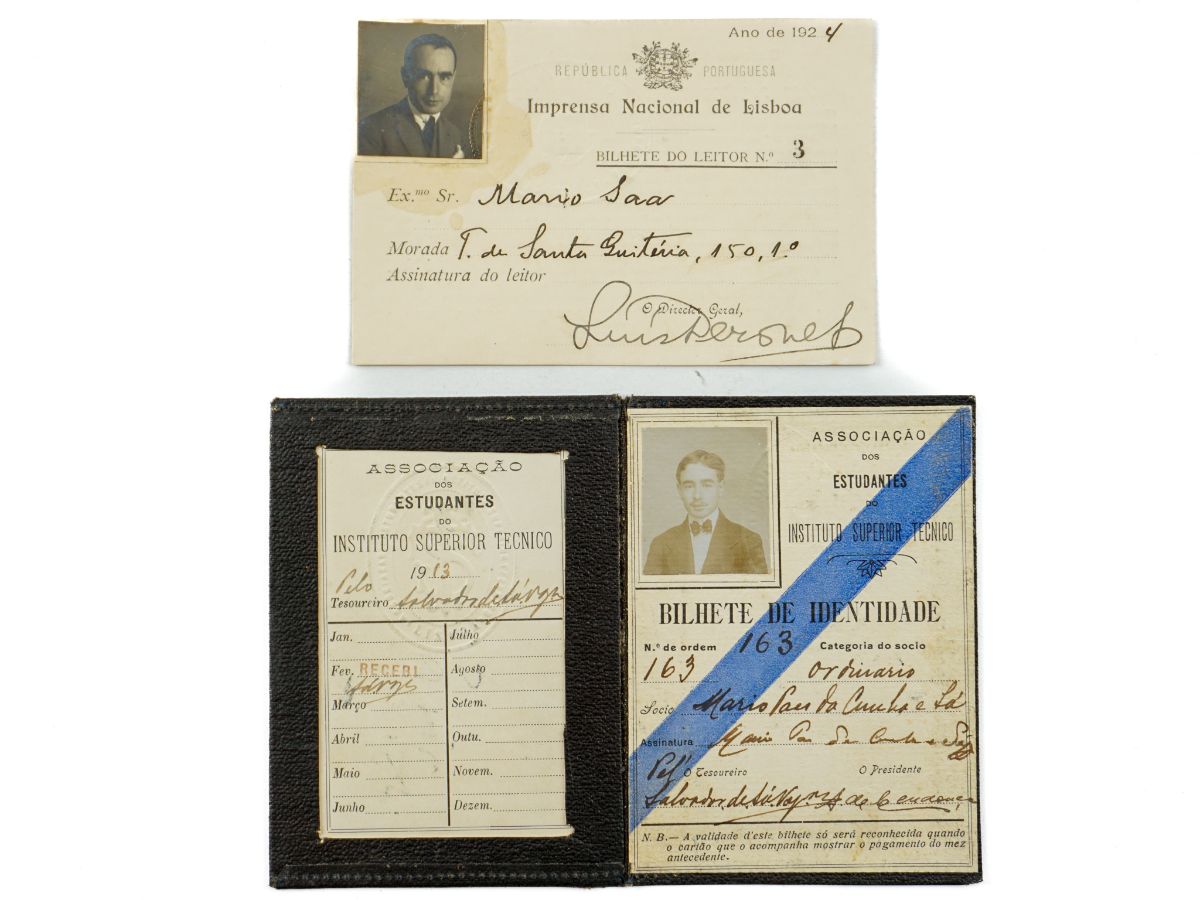 Ano de 1924
REPÚBLICA PORTUGUESA
Imprensa Nacional de Lisboa
BILHETE DO LEITOR N.º 3
Ex.mo Sr. Mario Saa
Morada T. de Santa Quitéria, 150, 1.º
Assinatura do leitor
O Director Geral,
Luis Derouet
ASSOCIAÇÃO
DOS
ESTUDANTES
DO
INSTITUTO SUPERIOR TECNICO
1913
Pelo
Tesoureiro Salvador de Sá
Jan. Julho
Fev. RECEBI Agosto
Março Setem.
Abril Outu.
Maio Novem.
Junho Dezem.
ASSOCIAÇÃO
DOS
ESTUDANTES
DO
INSTITUTO SUPERIOR TECNICO
BILHETE DE IDENTIDADE
N.º de ordem 163 Categoria do socio
163 Ordinario
Socio Mario Paes da Cunha e Sá
Assinatura Mario Paes da Cunha e Sá
Pel' O Tesoureiro O Presidente
Salvador de Sá
N. B.— A validade d'este bilhete só será reconhecida quando
o cartão que o acompanha mostrar o pagamento do mez
antecedente.